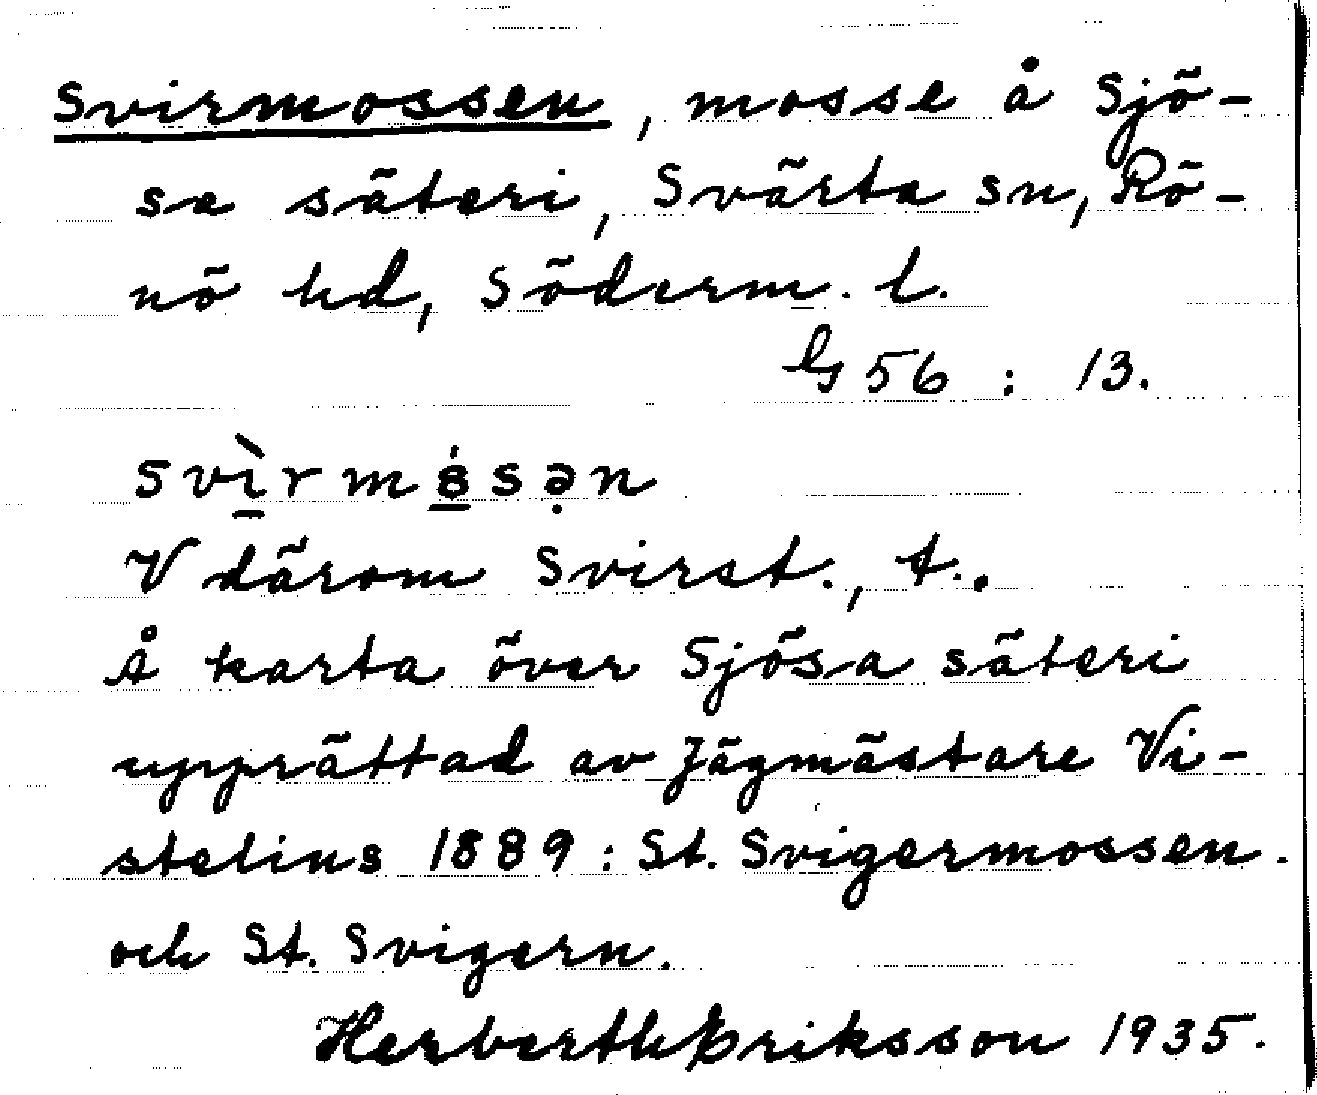 Svirmossen, mosse å Sjö-
sa säteri, Svärta sn, Rö-
nö hd, Söderm. l.
G 56 : 13.
svìrmósən
V därom Svirst., t..
Å karta över Sjösa säteri
upprättad av Jägmästare Vi-
stelius 1889 : St. Svigermossen.
och St. Svigern.
Herberth Eriksson 1935.